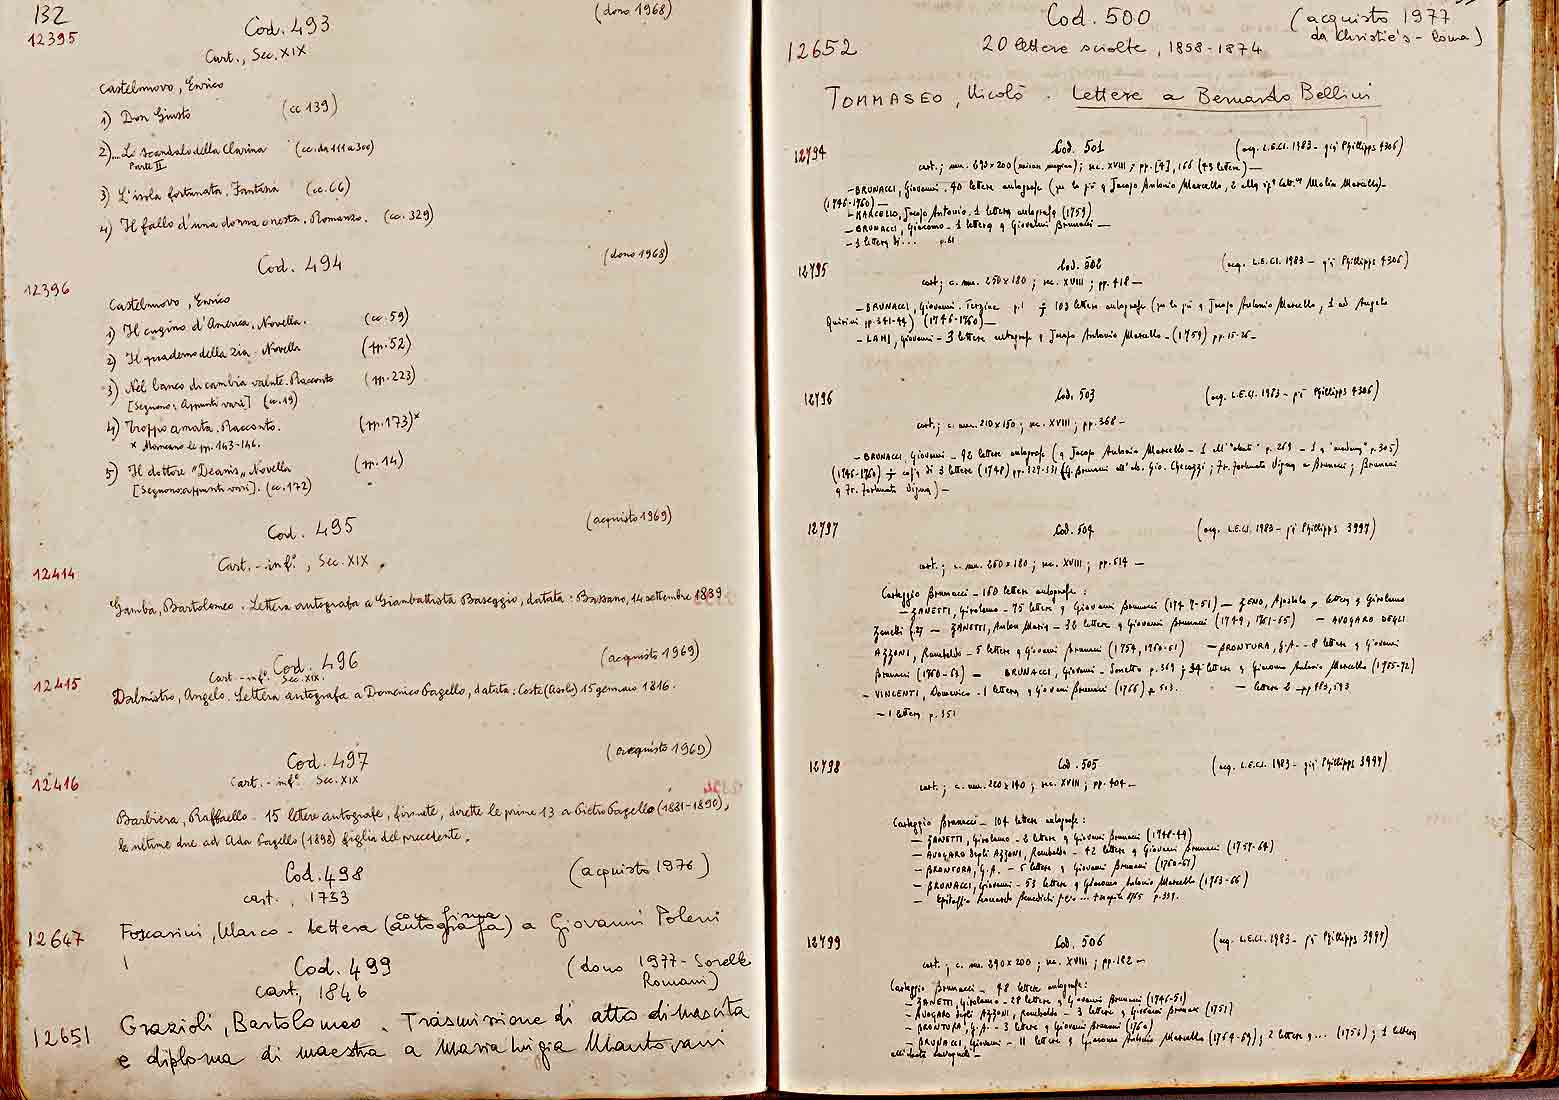 132
Cod. 493
(dono 1968)
12395
Cart., Sec. XIX
Castelnuovo, Enrico
1) Don Giusto (cc 139)
2) ... Lo scandalo della Clarina (cc. da 111 a 300)
Parte II
3) L'isola fortunata. Fantasia (cc. 66)
4) Il fallo d'una donna onesta. Romanzo. (cc. 329)
Cod. 494
(dono 1968)
12396
Castelnuovo, Enrico
1) Il cugino d'America. Novella. (cc. 59)
2) Il quaderno della zia. Novella (pp. 52)
3) Nel banco di cambia valute. Racconto (pp. 223)
[Seguono: Appunti vari] (cc. 19)
4) Troppo amata. Racconto. (pp. 173)*
* Mancano le pp. 143-146.
5) Il dottore "Deanis„ Novella (pp. 14)
[Seguono appunti vari]. (cc. 172)
Cod. 495
(acquisto 1969)
Cart. - inf.°, Sec. XIX.
12414
Gamba, Bartolomeo. Lettera autografa a Giambattista Baseggio, datata: Bassano, 14 settembre 1839
Cod. 496
(acquisto 1969)
Cart - inf.° Sec. XIX.
12415
Dalmistro, Angelo. Lettera autografa a Domenico Pagello, datata: Coste (Asolo) 15 gennaio 1816.
Cod. 497
(acquisto 1969)
12416
Cart. - inf.° Sec. XIX
Barbiera, Raffaello - 15 lettere autografe, firmate, dirette le prime 13 a Pietro Pagello (1881-1890),
le ultime due ad Ada Pagello (1898) figlia del precedente.
Cod. 498
(acquisto 1976)
cart., 1753
con firma
12647
Foscarini, Marco - Lettera (autografa) a Giovanni Poleni
Cod. 499
(dono 1977 - Sorelle
Romani)
cart., 1846
12651
Grazioli, Bartolomeo. Trasmissione di atto di nascita
e diploma di maestra a Maria Luigia Mantovani
Cod. 500
(acquisto 1977
da Christie's - Roma)
12652
20 lettere sciolte, 1858-1874
TOMMASEO, Nicolò. Lettere a Bernardo Bellini
12794
Cod. 501
(acq. L.E.Cl. 1983 - già Phillipps 4306)
sec. XVIII; pp. [4], 166 (43 lettere) -
- BRUNACCI, Giovanni. 40 lettere autografe (per lo più a Jacopo Antonio Marcello, 2 alla Molin Marcello)-
(1746-1760) -
- MARCELLO, Jacopo Antonio. 1 lettera autografa (1759)
- BRUNACCI, Giacomo - 1 lettera a Giovanni Brunacci -
- 1 lettera di... p. 61
12795
Cod. 502
(acq. L.E.Cl. 1983 - già Phillipps 4306)
cart.; c. mm. 250×180; sec. XVIII; pp. 418 -
- BRUNACCI, Giovanni. Terzine p. 1 + 103 lettere autografe (per lo più a Jacopo Antonio Marcello, 1 ad Angelo
Quirini pp. 341-44) (1746-1760) -
- LAMI, Giovanni - 3 lettere autografe a Jacopo Antonio Marcello - (1759) pp. 15-26 -
12796
Cod. 503
(acq. L.E.Cl. 1983 - già Phillipps 4306)
cart.; c. mm. 210×150; sec. XVIII; pp. 368 -
- BRUNACCI, Giovanni - 92 lettere autografe (a Jacopo Antonio Marcello - 1 all'"abate" p. 269 - 1 a "madama" p. 305)
(1746-1760) + copia di 3 lettere (1748) pp. 329-331 (G. Brunacci all'ab. Gio. Checozzi; Fr. Fortunato Vigna a Brunacci; Brunacci
a Fr. Fortunato Vigna) -
12797
Cod. 504
(acq. L.E.Cl. 1983 - già Phillipps 3997)
cart.; c. mm. 260×180; sec. XVIII; pp. 614 -
Carteggio Brunacci - 160 lettere autografe:
- ZANETTI, Girolamo - 75 lettere a Giovanni Brunacci - ZENO, Apostolo, lettera a Girolamo
Zanetti - ZANETTI, Anton Maria - 32 lettere a Giovanni Brunacci (1749, 1761-65) - AVOGARO DEGLI
AZZONI, Rambaldo - 5 lettere a Giovanni Brunacci (1754, 1760-61) - BRONTURA, G.A. - 8 lettere a Giovanni
Brunacci (1760-63) - BRUNACCI, Giovanni - Sonetto p. 369; 34 lettere a Giacomo Antonio Marcello (1755-72)
- VINCENTI, Domenico - 1 lettera a Giovanni Brunacci (1766) p. 513. - lettere 2 - pp. 883, 593
- 1 lettera p. 351
12798
Cod. 505
(acq. L.E.Cl. 1983 - già Phillipps 3997)
cart.; c. mm. 220×140; sec. XVIII; pp. 404 -
Carteggio Brunacci - 104 lettere autografe:
- ZANETTI, Girolamo - 2 lettere a Giovanni Brunacci (1748-49)
- AVOGARO degli AZZONI, Rambaldo - 42 lettere a Giovanni Brunacci (1759-64)
- BRONTURA, G.A. - 5 lettere a Giovanni Brunacci (1760-61)
- BRUNACCI, Giovanni - 53 lettere a Giacomo Antonio Marcello (1763-66)
- Epitaffio p. 339.
12799
Cod. 506
(acq. L.E.Cl. 1983 - già Phillipps 3997)
cart.; c. mm. 390×200; sec. XVIII; pp. 182 -
Carteggio Brunacci - 48 lettere autografe:
- ZANETTI, Girolamo - 28 lettere a Giovanni Brunacci (1746-51)
- AVOGARO degli AZZONI, Rambaldo - 3 lettere a Giovanni Brunacci (1757)
- BRONTURA, G.A. - 3 lettere a Giovanni Brunacci (1760)
- BRUNACCI, Giovanni - 11 lettere a Giacomo Antonio Marcello (1764-69); 2 lettere a... (1756); 1 lettera